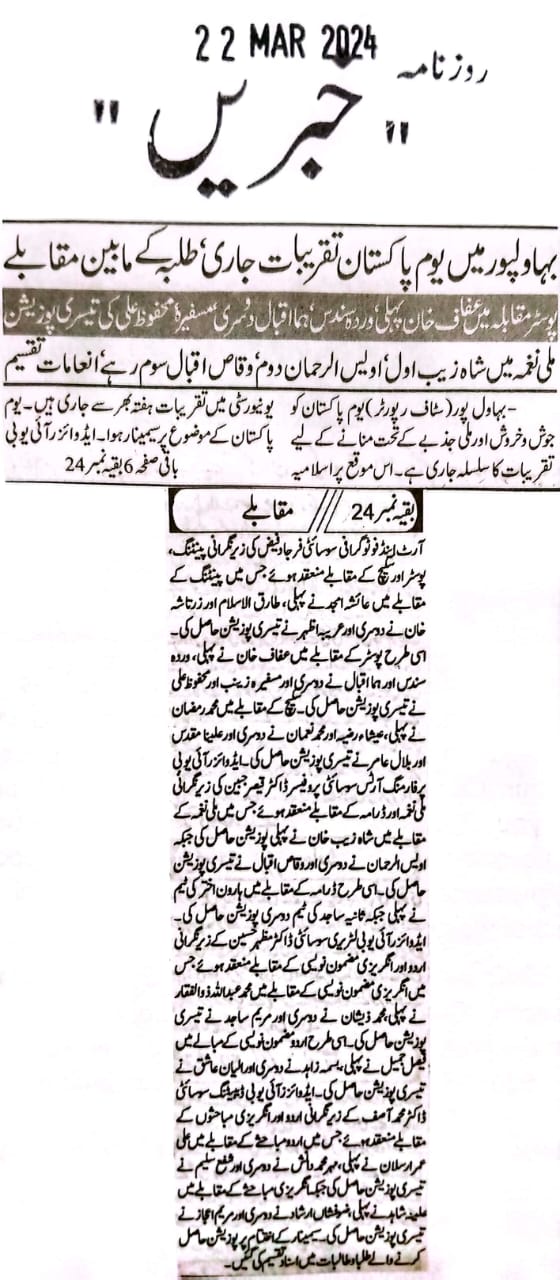 22 MAR 2024
روزنامہ
"خبریں"
بہاولپور میں یوم پاکستان تقریبات جاری، طلبہ کے مابین مقابلے
پوسٹر مقابلہ میں عفاف خان پہلی، وردہ سندس، ہما اقبال دوسری، سفیرہ، محفوظ علی کی تیسری پوزیشن
ملی نغمہ میں شاہ زیب اول، اویس الرحمان دوم، وقاص اقبال سوم رہے، انعامات تقسیم
بہاول پور (سٹاف رپورٹر) یوم پاکستان کو
جوش و خروش اور ملی جذبے کے تحت منانے کے لیے
تقریبات کا سلسلہ جاری ہے۔ اس موقع پر اسلامیہ
یونیورسٹی میں تقریبات ہفتہ بھر سے جاری ہیں۔ یوم
پاکستان کے موضوع پر سیمینار ہوا۔ ایڈوائزر آئی یو بی
باقی صفحہ 6 بقیہ نمبر 24
بقیہ نمبر 24 /// مقابلے
آرٹ اینڈ فوٹوگرافی سوسائٹی فرجاد فیض کی زیرنگرانی پینٹنگ،
پوسٹر اور سکیچ کے مقابلے منعقد ہوئے جس میں پینٹنگ کے
مقابلے میں عائشہ امجد نے پہلی، طارق الاسلام اور زرتاشہ
خان نے دوسری اور عریبہ اظہر نے تیسری پوزیشن حاصل کی۔
اسی طرح پوسٹر کے مقابلے میں عفاف خان نے پہلی، وردہ
سندس اور ہما اقبال نے دوسری اور سفیرہ زینب اور محفوظ علی
نے تیسری پوزیشن حاصل کی۔ سکیچ کے مقابلے میں محمد رمضان
نے پہلی، عیشاء رضیہ اور محمد نعمان نے دوسری اور علینا مقدس
اور بلال عامر نے تیسری پوزیشن حاصل کی۔ ایڈوائزر آئی یو بی
پرفارمنگ آرٹس سوسائٹی پروفیسر ڈاکٹر قیصر جبین کی زیرنگرانی
ملی نغمہ اور ڈرامہ کے مقابلے منعقد ہوئے جس میں ملی نغمہ کے
مقابلے میں شاہ زیب خان نے پہلی پوزیشن حاصل کی جبکہ
اویس الرحمان نے دوسری اور وقاص اقبال نے تیسری پوزیشن
حاصل کی۔ اسی طرح ڈرامہ کے مقابلے میں ہارون اختر کی ٹیم
نے پہلی جبکہ ثانیہ ساجد کی ٹیم دوسری پوزیشن حاصل کی۔
ایڈوائزر آئی یو بی لٹریری سوسائٹی ڈاکٹر مظہر حسین کے زیرنگرانی
اردو اور انگریزی مضمون نویسی کے مقابلے منعقد ہوئے جس
میں انگریزی مضمون نویسی کے مقابلے میں محمد عبداللہ ذوالفقار
نے پہلی، محمد ذیشان نے دوسری اور مریم ساجد نے تیسری
پوزیشن حاصل کی۔ اسی طرح اردو مضمون نویسی کے مقابلے میں
فیصل جمیل نے پہلی، بسمہ زاہد نے دوسری اور الیان عاشق نے
تیسری پوزیشن حاصل کی۔ ایڈوائزر آئی یو بی ڈیبیٹنگ سوسائٹی
ڈاکٹر محمد آصف کے زیرنگرانی اردو اور انگریزی مباحثوں کے
مقابلے منعقد ہوئے جس میں اردو مباحثے کے مقابلے میں علی
عمر ارسلان نے پہلی، مہر محمد دانش نے دوسری اور شفع سلیم نے
تیسری پوزیشن حاصل کی جبکہ انگریزی مباحثے کے مقابلے میں
علینہ شاہد نے پہلی، ضوفشاں ارشاد نے دوسری اور مریم اعجاز نے
تیسری پوزیشن حاصل کی۔ سیمینار کے اختتام پر پوزیشن حاصل
کرنے والے طلبا و طالبات میں اسناد تقسیم کی گئیں۔